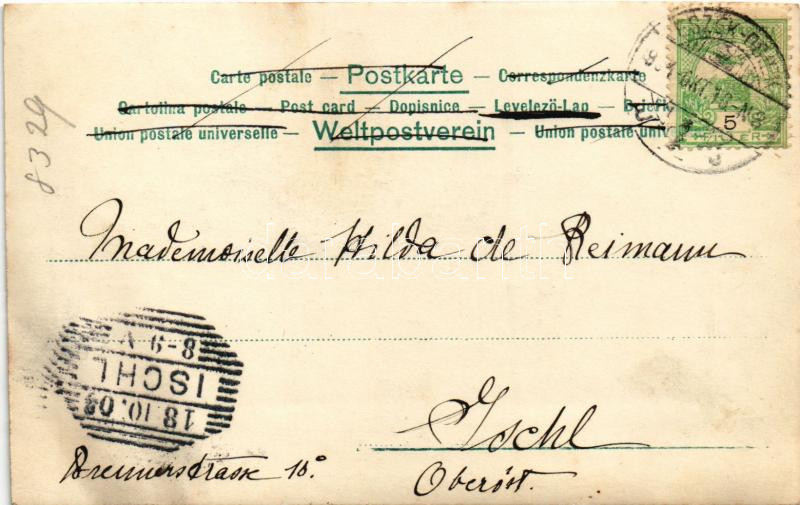 Carte postale – Postkarte – Correspondenzkarte
Cartolina postale – Post card – Dopisnice – Levelező-Lap – Briefk
Union postale universelle – Weltpostverein – Union postale univ
5
FILLER
8329
Mademoiselle Hilda de Reimann
darabanth
8-9 V
ISCHL
18.10.03
Ischl
Brennerstrasse 10.
Oberöst.